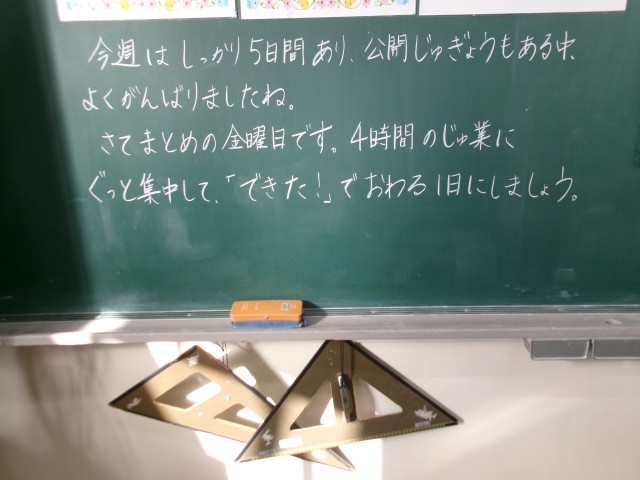 今週はしっかり5日間あり、公開じゅぎょうもある中、
よくがんばりましたね。
さてまとめの金曜日です。4時間のじゅ業に
ぐっと集中して、「できた！」でおわる1日にしましょう。